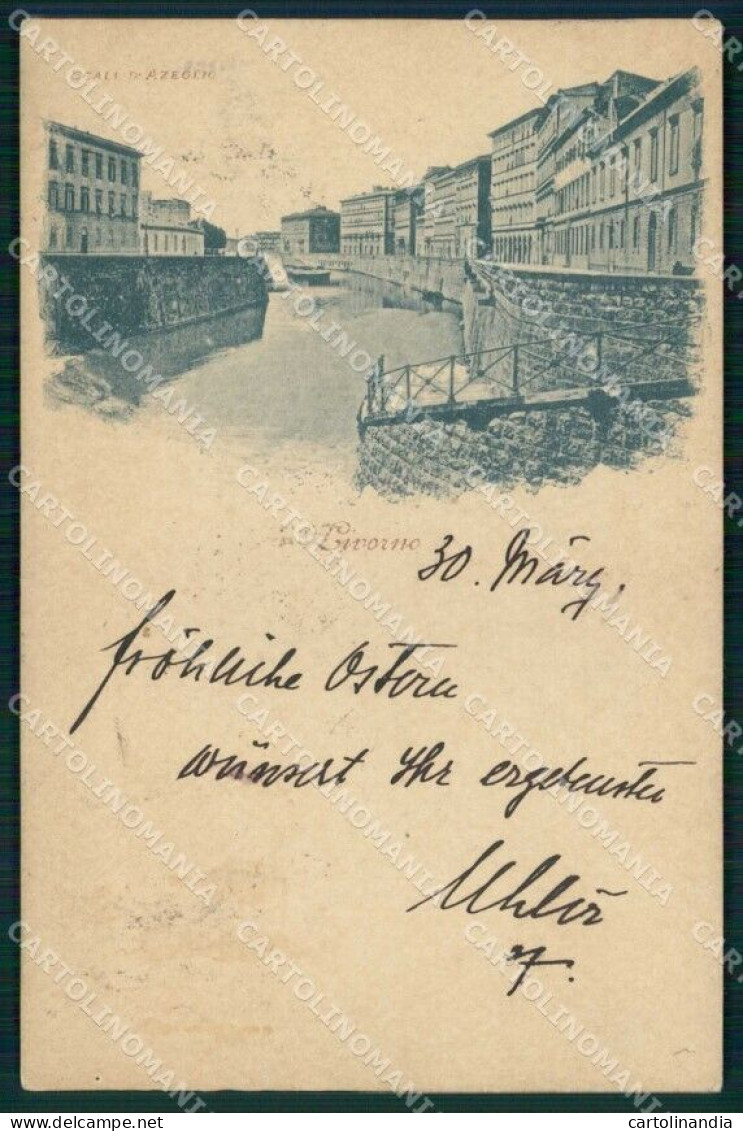 SCALI D'AZEGLIO
Livorno
30. März.
fröhliche Ostern
wünscht Ihr ergebenster
CARTOLINOMANIA
cartolinandia